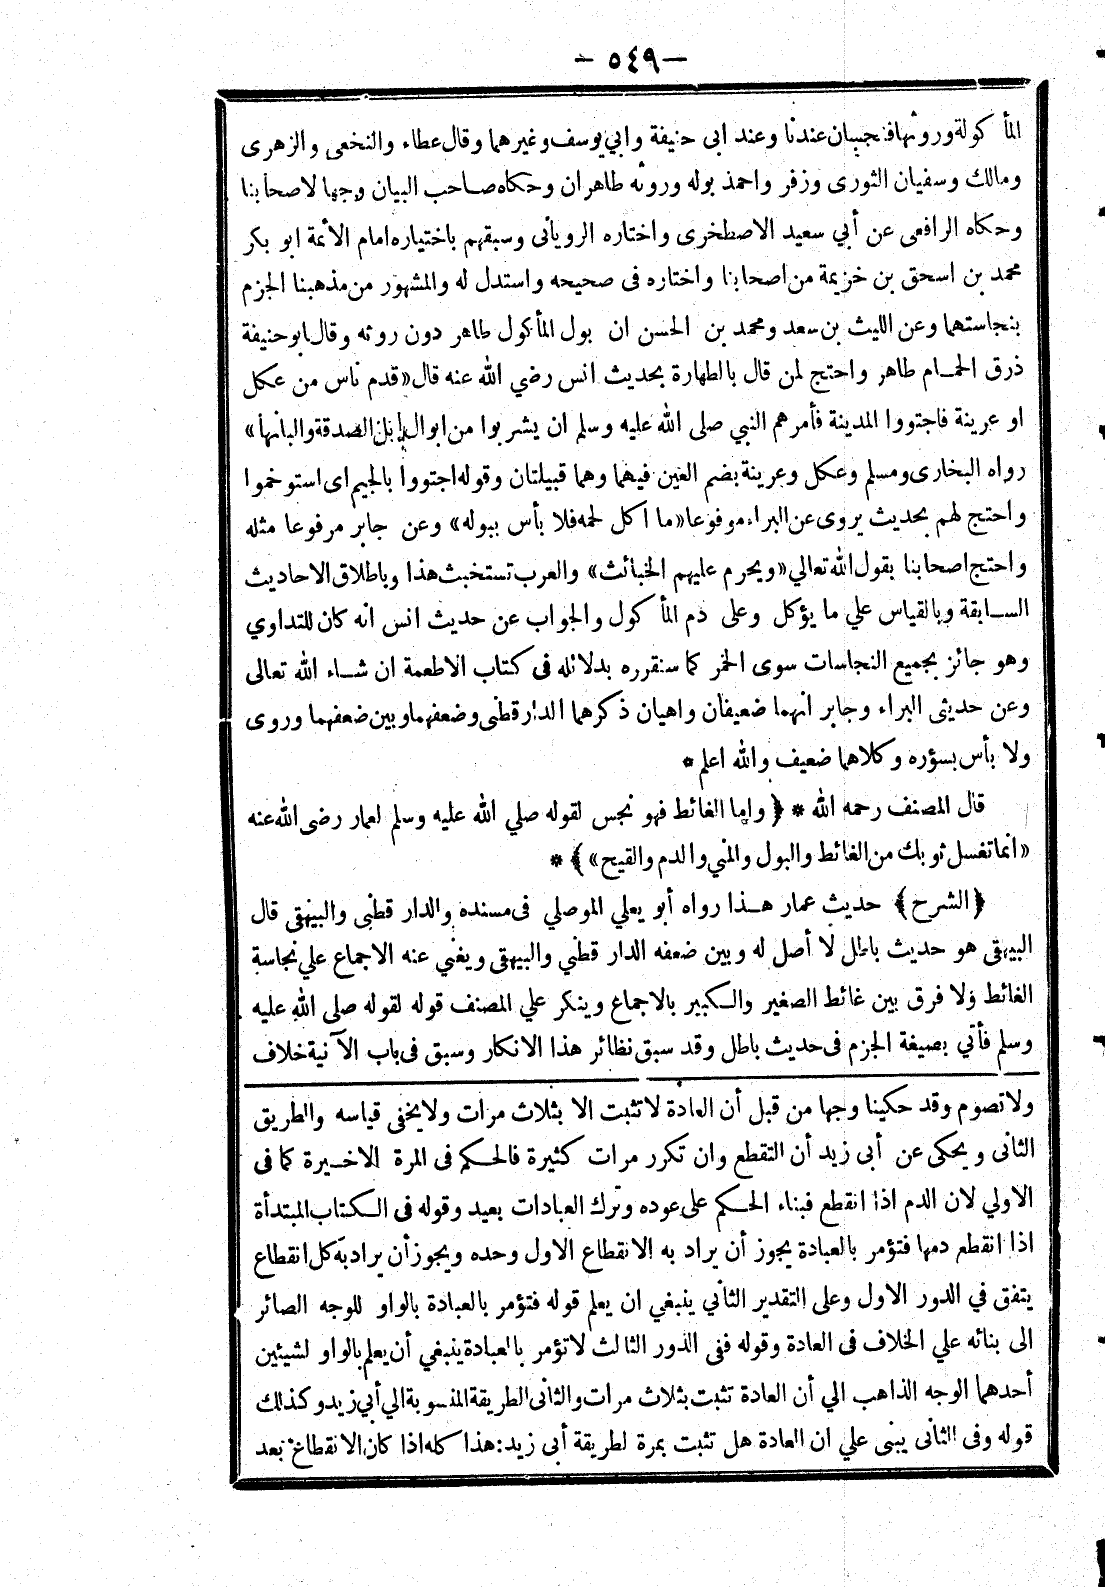 — ٥٤٩ —
المأ كولة وروثها فنجسان عندنا وعند ابى حنيفة وابي يوسف وغيرهما وقال عطاء والنخعى والزهرى
ومالك وسفيان الثورى وزفر واحمد بوله وروثه طاهران وحكاه صاحب البيان وجها لاصحابنا
وحكاه الرافعى عن أبي سعيد الاصطخرى واختاره الرويانى وسبقهم باختياره امام الأئمة ابو بكر
محمد بن اسحق بن خزيمة من اصحابنا واختاره فى صحيحه واستدل له والمشهور من مذهبنا الجزم
بنجاستهما وعن الليث بن سعد ومحمد بن الحسن ان بول المأكول طاهر دون روثه وقال ابوحنيفة
ذرق الحمام طاهر واحتج لمن قال بالطهارة بحديث انس رضي الله عنه قال «قدم ناس من عكل
او عرينة فاجتووا المدينة فأمرهم النبي صلى الله عليه وسلم ان يشربوا من ابوال إبل الصدقة والبانها»
رواه البخارى ومسلم وعكل وعرينة بضم العين فيهما وهما قبيلتان وقوله اجتووا بالجيم اى استوخموا
واحتج لهم بحديث يروى عن البراء موفوعا «ما اكل لحمه فلا بأس ببوله» وعن جابر مرفوعا مثله
واحتج اصحابنا بقول الله تعالي «ويحرم عليهم الخبائث» والعرب تستخبث هذا وباطلاق الاحاديث
السابقة وبالقياس علي ما يؤكل وعلى دم المأ كول والجواب عن حديث انس انه كان للتداوي
وهو جائز بجميع النجاسات سوى الخمر كما سنقرره بدلائله فى كتاب الاطعمة ان شاء الله تعالى
وعن حديثى البراء وجابر انهما ضعيفان واهيان ذكرهما الدارقطنى وضعفهما وبين ضعفهما وروى
ولا بأس بسؤره وكلاهما ضعيف والله اعلم *
قال المصنف رحمه الله * ﴿ واما الغائط فهو نجس لقوله صلي الله عليه وسلم لعمار رضى الله عنه
«انما تغسل ثوبك من الغائط والبول والمني والدم والقيح» ﴾ *
﴿الشرح﴾ حديث عمار هذا رواه أبو يعلي الموصلي فى مسنده والدار قطنى والبيهقى قال
البيهقى هو حديث باطل لا أصل له وبين ضعفه الدار قطني والبيهقى ويغني عنه الاجماع علي نجاسة
الغائط ولا فرق بين غائط الصغير والكبير بالاجماع وينكر علي المصنف قوله لقوله صلى الله عليه
وسلم فأتي بصيغة الجزم فى حديث باطل وقد سبق نظائر هذا الانكار وسبق فى باب الآنية خلاف
ولا تصوم وقد حكينا وجها من قبل أن العادة لا تثبت الا بثلاث مرات ولا يخفى قياسه والطريق
الثانى ويحكى عن أبى زيد أن التقطع وان تكرر مرات كثيرة فالحكم فى المرة الاخيرة كما فى
الاولي لان الدم اذا انقطع فبناء الحكم على عوده وترك العبادات بعيد وقوله فى الكتاب المبتدأة
اذا انقطع دمها فتؤمر بالعبادة يجوز أن يراد به الانقطاع الاول وحده ويجوز أن يراد به كل انقطاع
يتفق في الدور الاول وعلى التقدير الثاني ينبغي ان يعلم قوله فتؤمر بالعبادة بالواو للوجه الصائر
الى بنائه علي الخلاف فى العادة وقوله ففى الدور الثالث لا تؤمر بالعبادة ينبغي أن يعلم بالواو لشيئين
أحدهما الوجه الذاهب الي أن العادة تثبت بثلاث مرات والثانى الطريقة المنسوبة الي أبي زيد وكذلك
قوله وفى الثانى يبنى علي ان العادة هل تثبت بمرة لطريقة أبى زيد: هذا كله اذا كان الانقطاع بعد